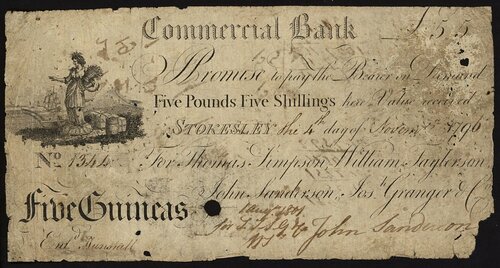 Commercial Bank £5,5
I Promise to pay the Bearer on Demand
Five Pounds Five Shillings here Value received
STOKESLEY the 4th day of Novemr 1796
No 1344 For Thomas Simpson William Taylerson
John Sanderson, Jos. Granger & Co
Five Guineas
John Sanderson
Entd